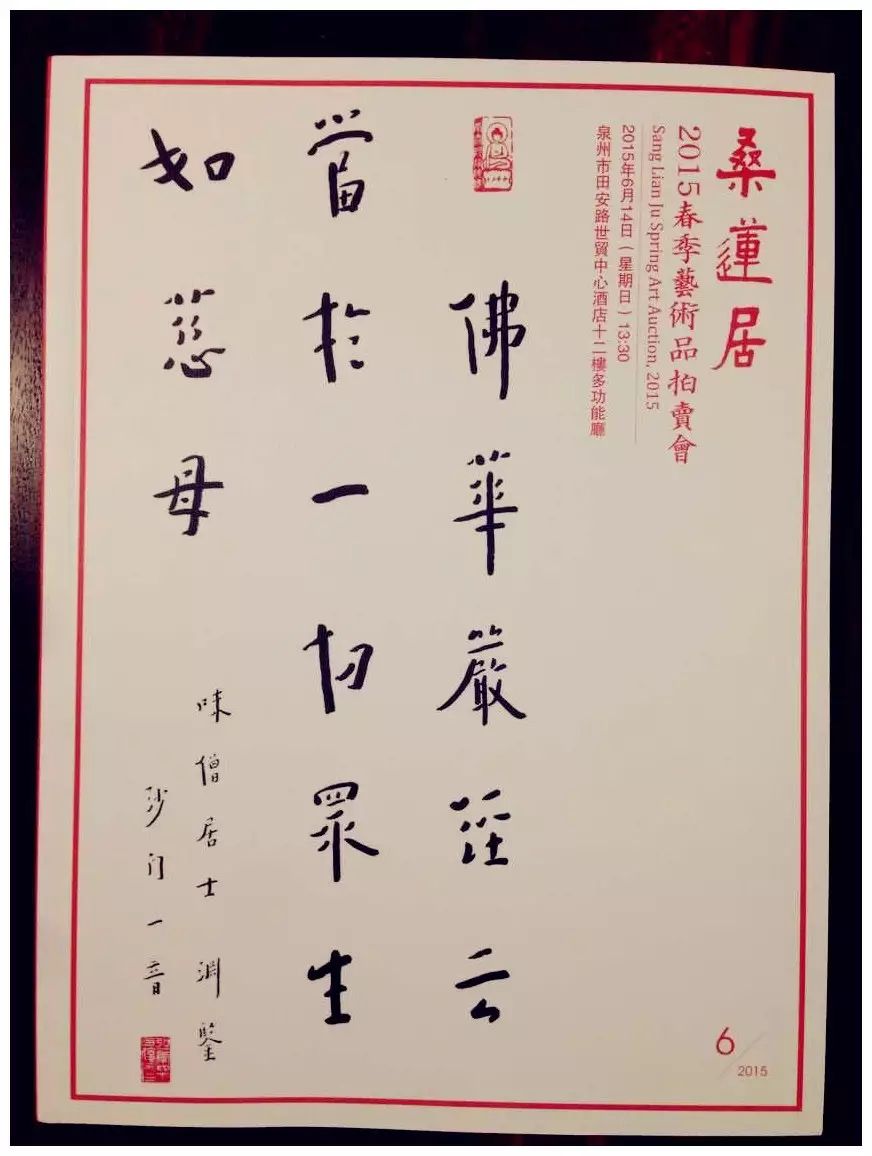 桑蓮居
2015春季藝術品拍賣會
Sang Lian Ju Spring Art Auction, 2015
2015年6月14日（星期日）13:30
泉州市田安路世貿中心酒店十二樓多功能廳
佛華嚴經云
當於一切眾生
如慈母
味僧居士淵鑒
沙门一音
6
2015